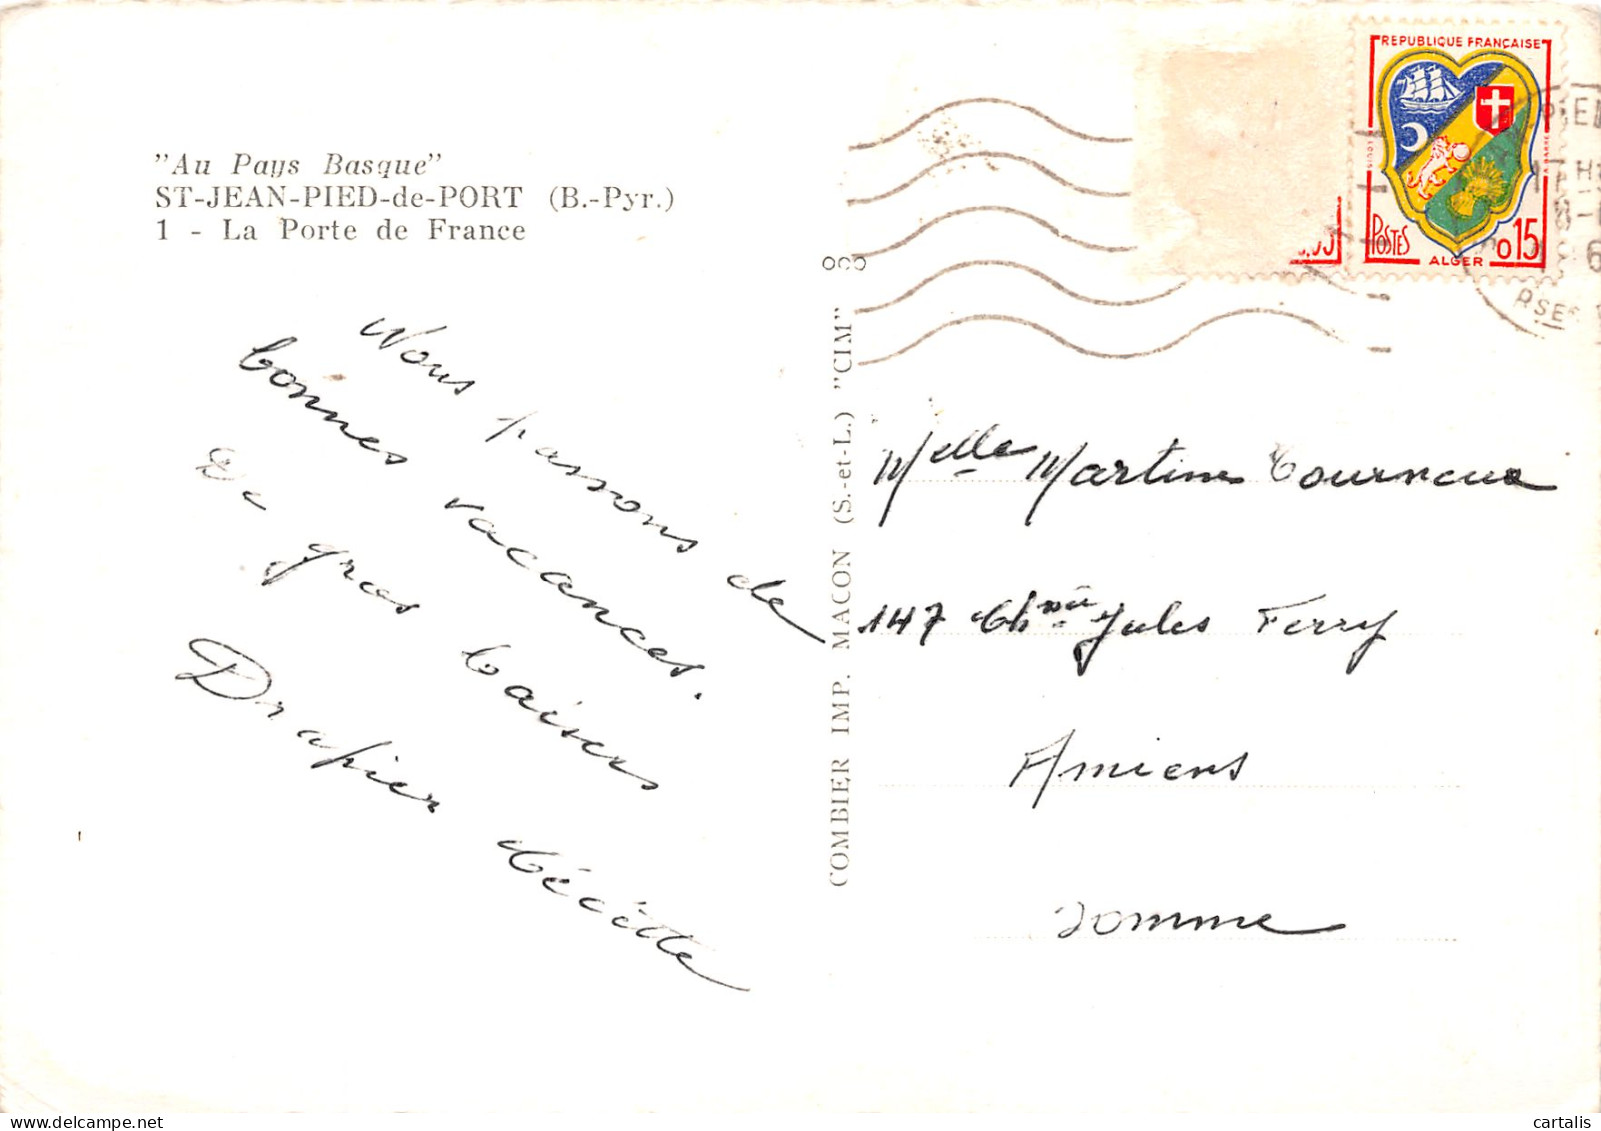 "Au Pays Basque"
ST-JEAN-PIED-de-PORT (B.-Pyr.)
1 - La Porte de France
Nous passons de
bonnes vacances.
De gros baisers
Drapier
COMBIER IMP. MACON (S.-et-L.) "CIM"
REPUBLIQUE FRANÇAISE
POSTES
ALGER
0,15
Melle Martine Tourneux
147 Jules Ferry
Amiens
Somme
cartalis
delcampe.net